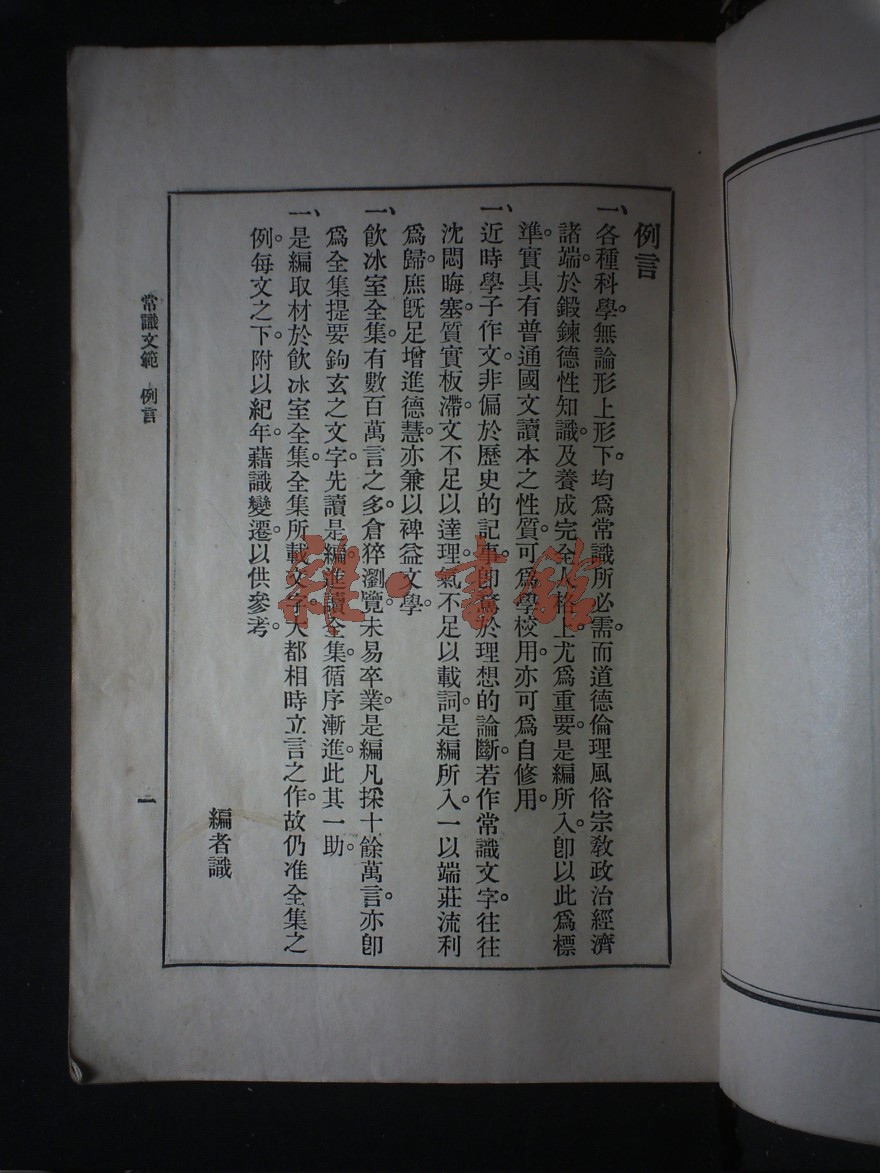 例言
一、各種科學。無論形上形下。均爲常識所必需。而道德倫理風俗宗教政治經濟
諸端。於鍛鍊德性知識。及養成完全人格上。尤爲重要。是編所入。卽以此爲標
準。實具有普通國文讀本之性質。可爲學校用。亦可爲自修用。
一、近時學子作文。非偏於歷史的記事。卽騖於理想的論斷。若作常識文字。往往
沈悶晦塞。質實板滯。文不足以達理。氣不足以載詞。是編所入。一以端莊流利
爲歸。庶旣足增進德慧。亦兼以裨益文學。
一、飲冰室全集。有數百萬言之多。倉猝瀏覽。未易卒業。是編凡採十餘萬言。亦卽
爲全集提要鉤玄之文字。先讀是編。進讀全集。循序漸進。此其一助。
一、是編取材於飲冰室全集。全集所載文字。大都相時立言之作。故仍准全集之
例。每文之下。附以紀年。藉識變遷。以供參考。
編者識
常識文範 例言
一
雜·書館